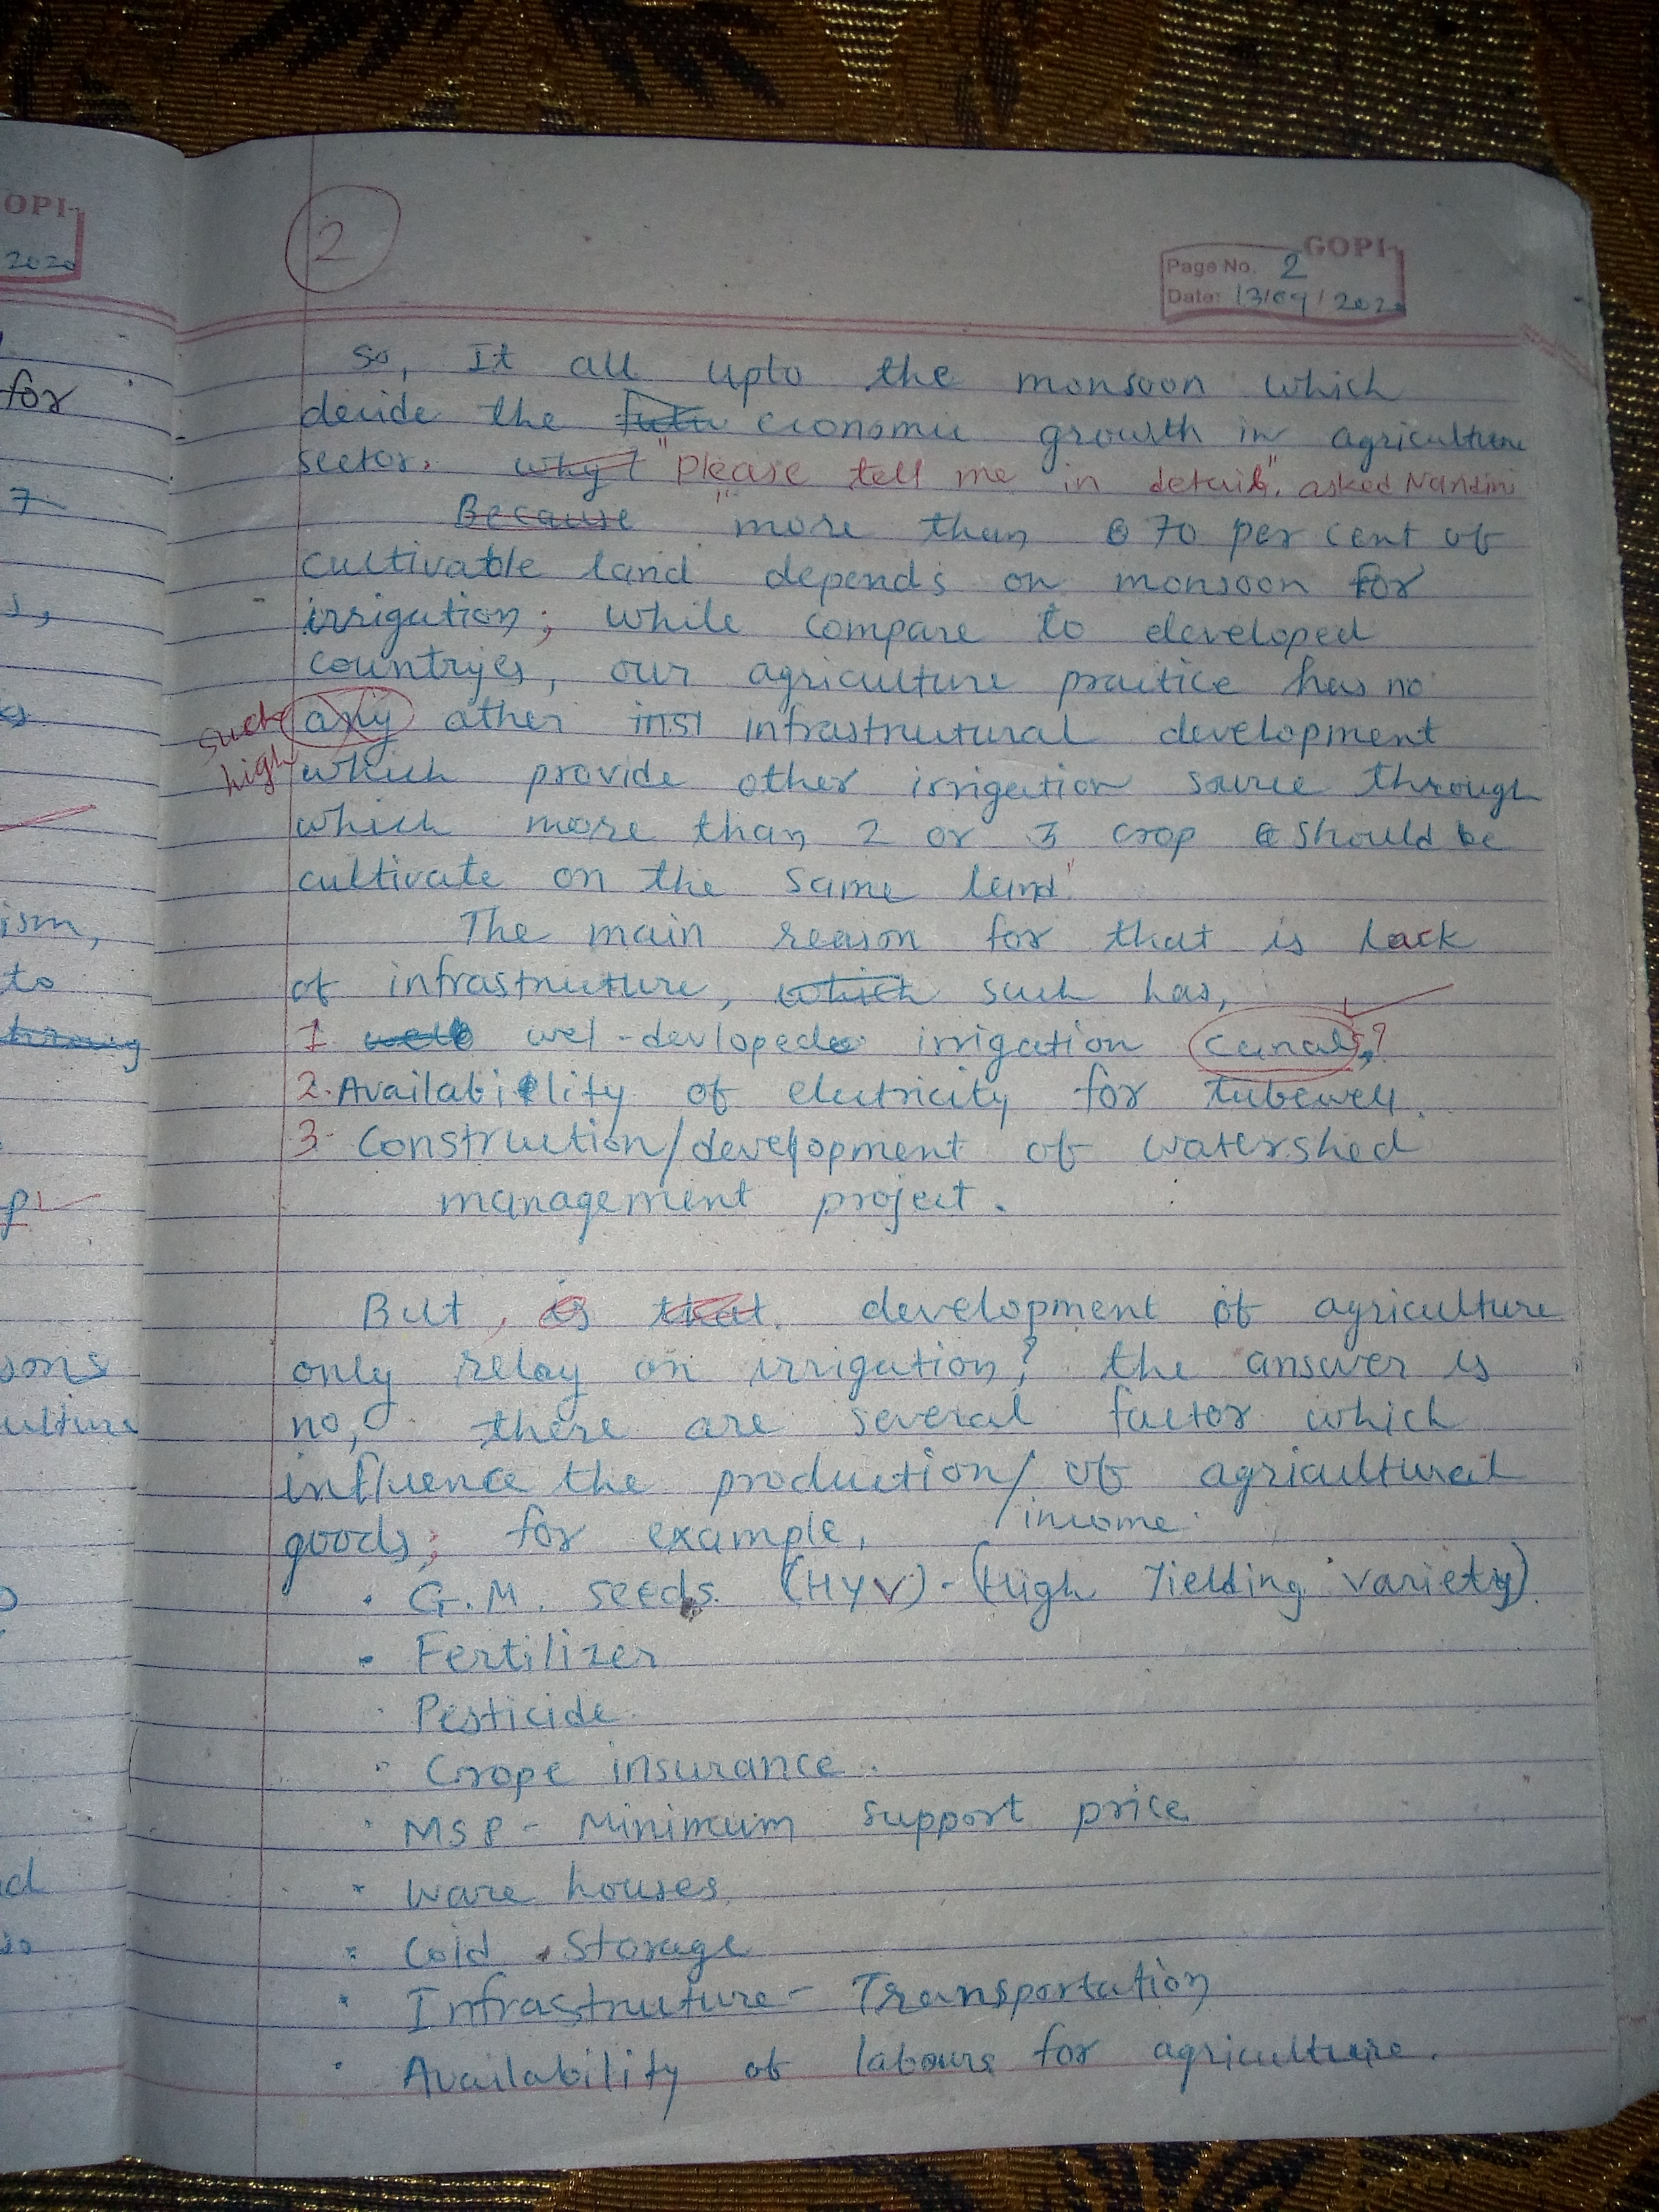 OPI
2020
for
7
s,
ism,
to
sons
ulture
2
GOPI
Page No. 2
Date: 13/09/2020
so, It all upto the monsoon which
decide the futu economic growth in agriculture
sector. why? "Please tell me in detail", asked Nandini
Because "more than 70 per cent of
cultivatble land depends on monsoon for
irrigation; while compare to developed
countryies, our agriculture practice has no
such high any other inst infrastrutural development
which provide other irrigation source through
which more than 2 or 3 crop should be
cultivate on the same land"
The main reason for that is lack
of infrastructure, which such has,
1 well wel-devloped irrigation canals,?
2. Availability of electricity for tubewell.
3. Construction/development of watershed
management project.
But, is that development of agriculture
only relay on irrigation? the answer is
no, there are several factor which
influence the production/income of agricultural
goods; for example,
• G.M. seeds. (HYV) - (High Yielding variety)
• Fertilizer
• Pesticide
• Crope insurance.
• MSP - Minimum support price
• ware houses
• Cold storage
• Infrastructure - Transportation
• Availability of labours for agriculture.